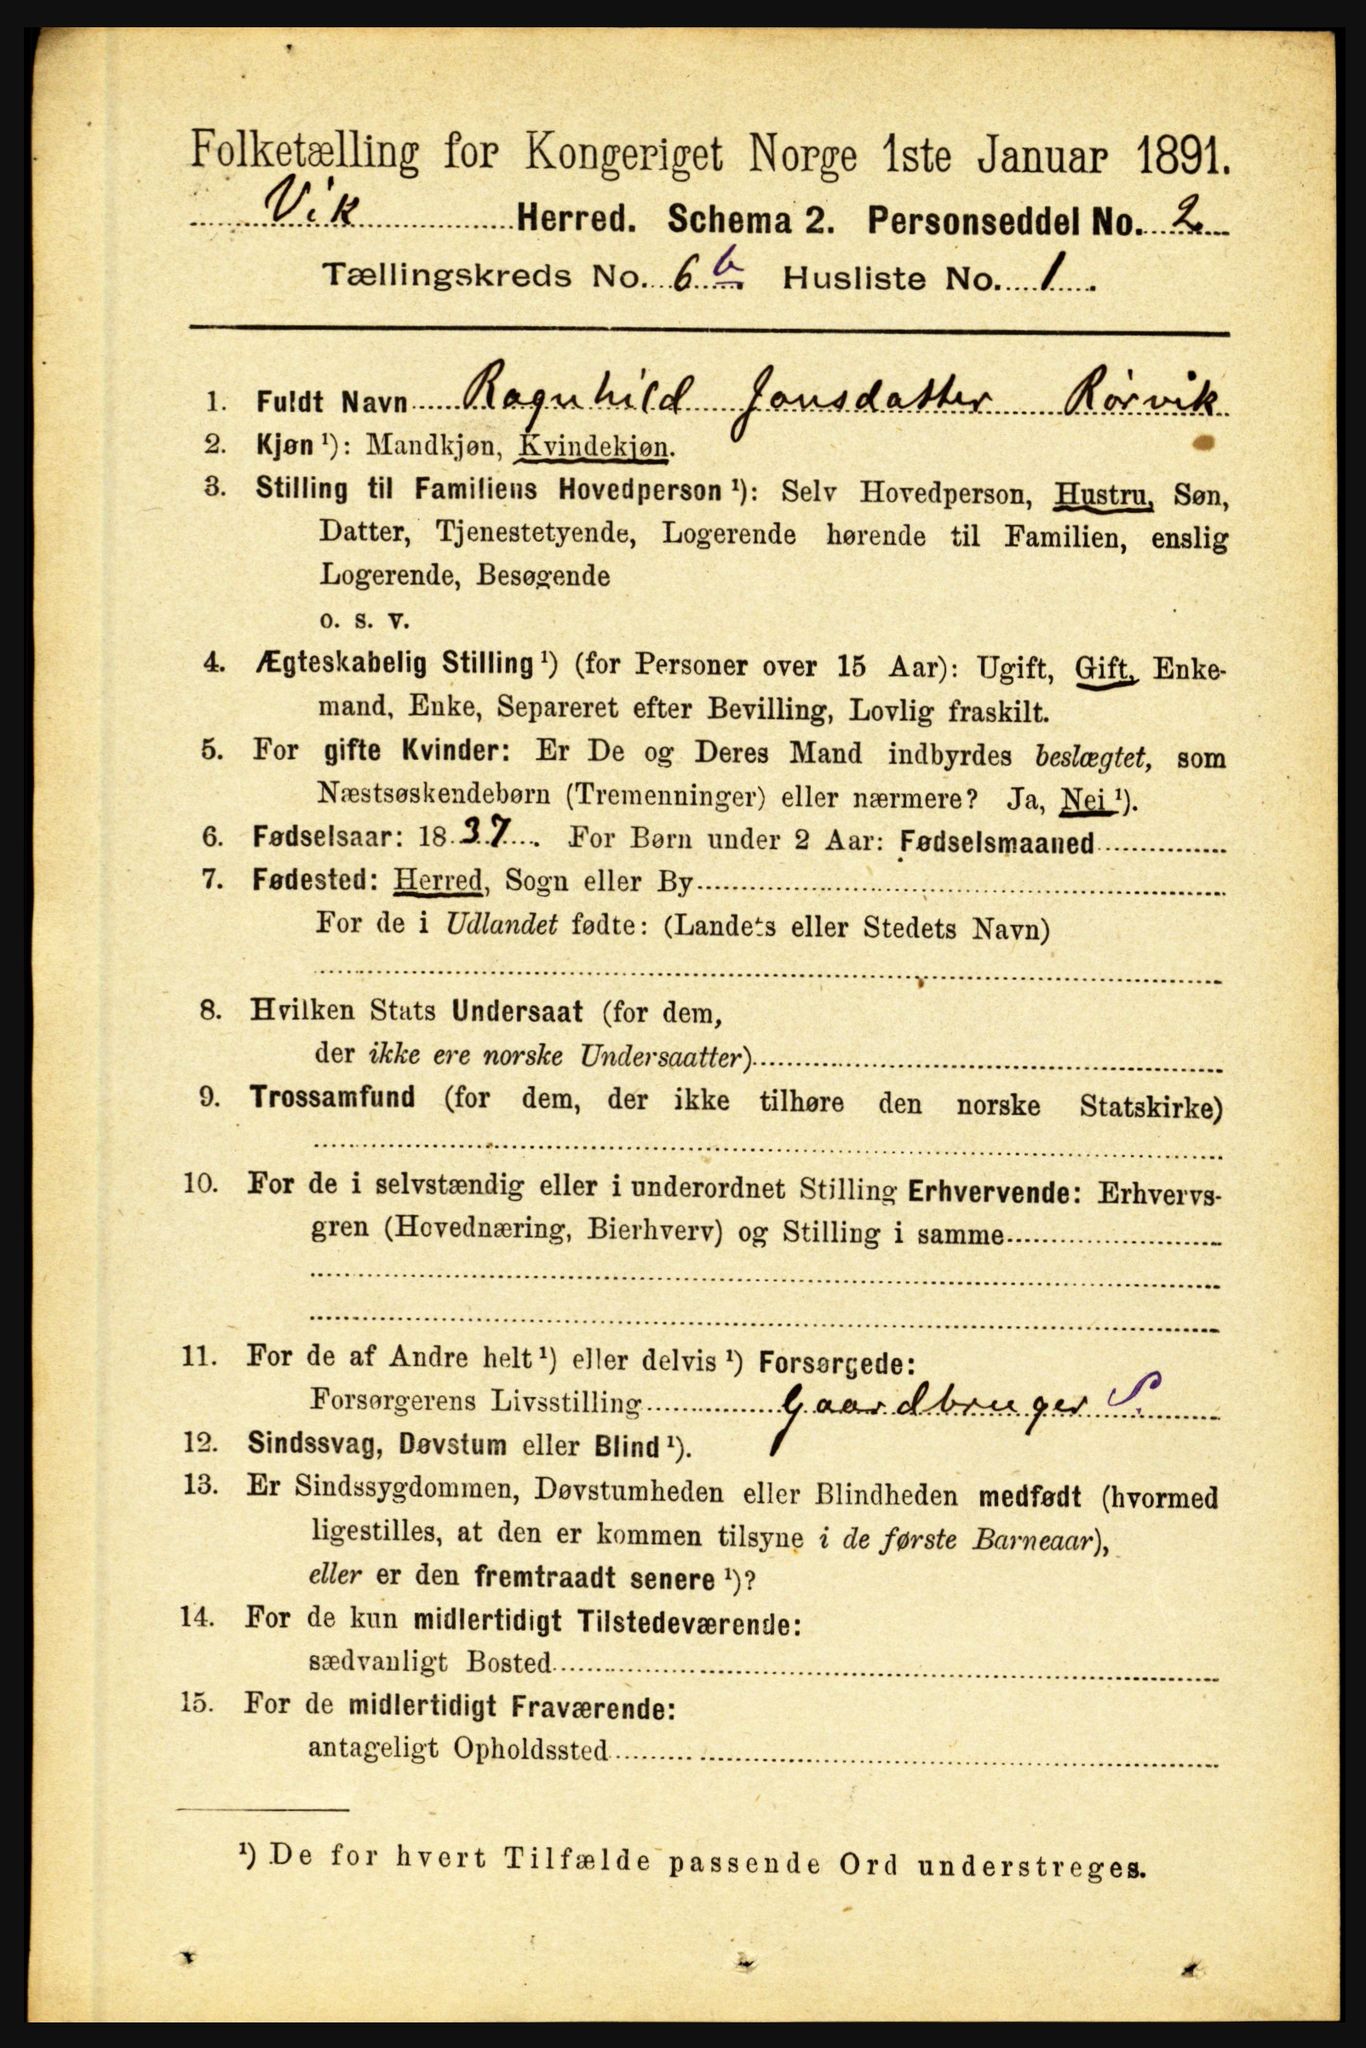 Folketælling for Kongeriget Norge 1ste Januar 1891.
Vik Herred. Schema 2. Personseddel No. 2
Tællingskreds No. 6 b Husliste No. 1.
1. Fuldt Navn Ragnhild Jonsdatter Rörvik
2. Kjøn ¹): Mandkjøn, Kvindekjøn.
3. Stilling til Familiens Hovedperson ¹): Selv Hovedperson, Hustru, Søn,
Datter, Tjenestetyende, Logerende hørende til Familien, enslig
Logerende, Besøgende
o. s. v.
4. Ægteskabelig Stilling ¹) (for Personer over 15 Aar): Ugift, Gift, Enke-
mand, Enke, Separeret efter Bevilling, Lovlig fraskilt.
5. For gifte Kvinder: Er De og Deres Mand indbyrdes beslægtet, som
Næstsøskendebørn (Tremenninger) eller nærmere? Ja, Nei ¹).
6. Fødselsaar: 1837. For Børn under 2 Aar: Fødselsmaaned
7. Fødested: Herred, Sogn eller By
For de i Udlandet fødte: (Landets eller Stedets Navn)
8. Hvilken Stats Undersaat (for dem,
der ikke ere norske Undersaatter)
9. Trossamfund (for dem, der ikke tilhøre den norske Statskirke)
10. For de i selvstændig eller i underordnet Stilling Erhvervende: Erhvervs-
gren (Hovednæring, Bierhverv) og Stilling i samme
11. For de af Andre helt ¹) eller delvis ¹) Forsørgede:
Forsørgerens Livsstilling Gaardbruger S.
12. Sindssvag, Døvstum eller Blind ¹).
13. Er Sindssygdommen, Døvstumheden eller Blindheden medfødt (hvormed
ligestilles, at den er kommen tilsyne i de første Barneaar),
eller er den fremtraadt senere ¹)?
14. For de kun midlertidigt Tilstedeværende:
sædvanligt Bosted
15. For de midlertidigt Fraværende:
antageligt Opholdssted
¹) De for hvert Tilfælde passende Ord understreges.